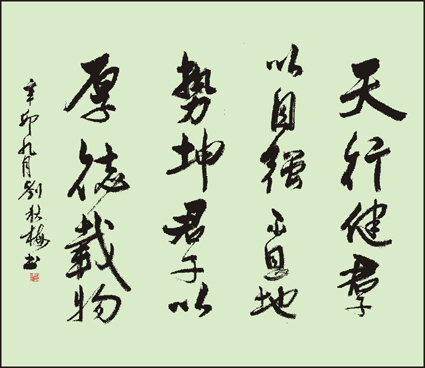 天行健君子
以自强不息地
势坤君子以
厚德載物
辛卯九月劉秋梅书